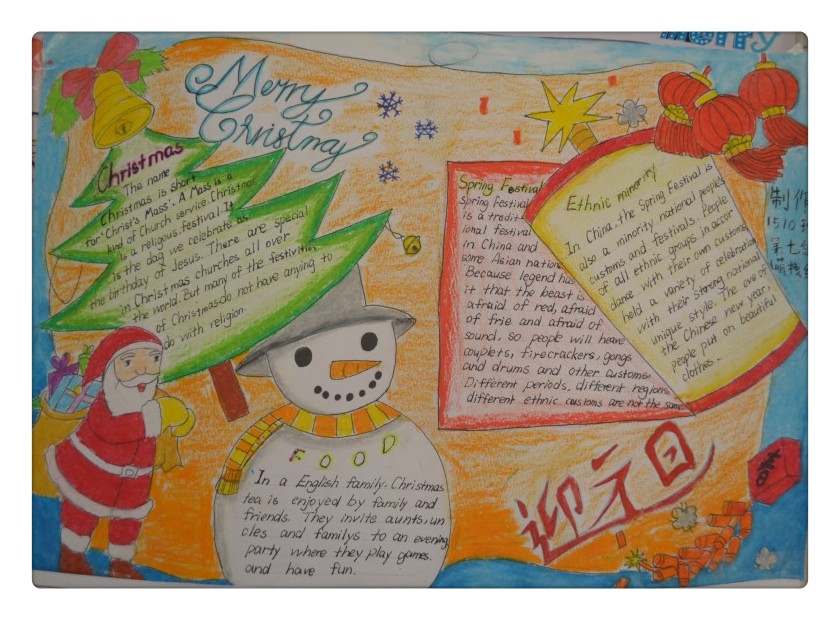 Merry
Christmas
Christmas
The name
Christmas is short
for 'Christ's Mass'. A Mass is a
kind of Church service. Christmas
is a religious festival. It
is the day we celebrate as
the birthday of Jesus. There are special
in Christmas churches all over
the world. But many of the festivities
of Christmas do not have anying to
do with religion.
FOOD
In a English family. Christmas
tea is enjoyed by family and
friends. They invite aunts, un
cles and familys to an evening
party where they play games.
and have fun.
Spring Festival
Spring festival
is a tradit-
ional festival
in China and
some Asian nation
Because legend has
it that the beast is
afraid of red, afraid
of frie and afraid of
sound, so people will heave
couplets, firecrackers, gongs
and drums and other customs.
Different periods, different regions
different ethnic customs are not the same
Ethnic minority
In China, the Spring Festival is
also a minority national people's
customs and festivals. People
of all ethnic groups in accor
dance with their own customs,
held a variety of celebration
with their strong national
unique style. The eve of
the Chinese new year,
people put on beautiful
clothes.
迎元旦
春
制作
1510
第七